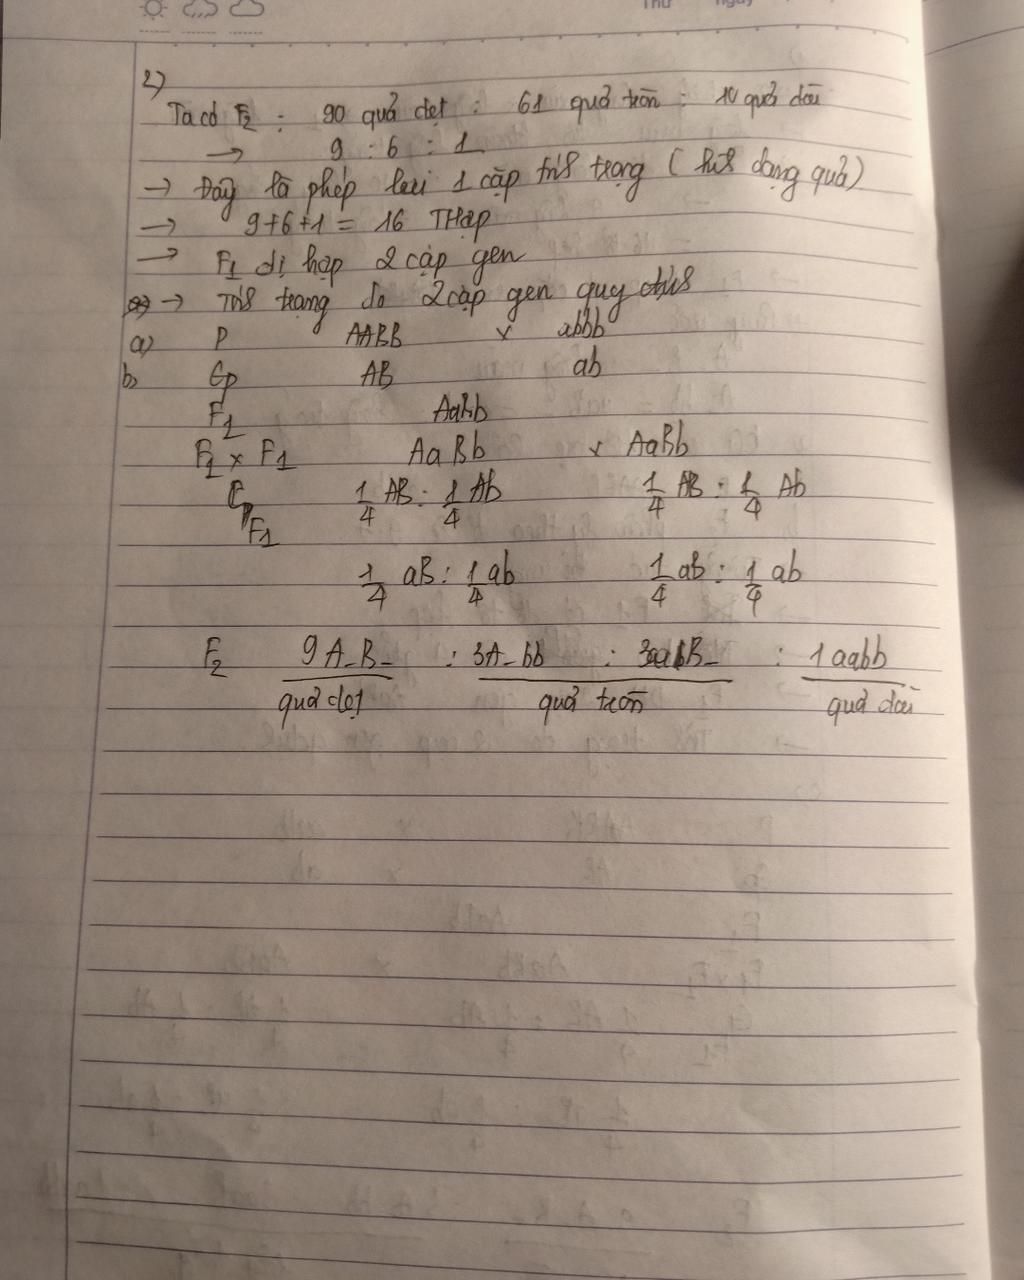 Thứ ngày
2)
Ta có F2 : 90 quả dẹt : 61 quả tròn : 10 quả dài
→ 9 : 6 : 1
→ Đây là phép lai 1 cặp tính trạng ( hình dạng quả)
→ 9+6+1 = 16 THợp
→ F1 dị hợp 2 cặp gen
→ Tính trạng do 2 cặp gen quy định
a) P AABB x abbb
b) Gp AB ab
F1 AaBb
F1 x F1 AaBb x AaBb
G F1 1/4 AB : 1/4 Ab 1/4 AB : 1/4 Ab
1/4 aB : 1/4 ab 1/4 aB : 1/4 ab
F2 9 A_B_ : 3A_bb : 3aaB_ : 1 aabb
quả dẹt quả tròn quả dài